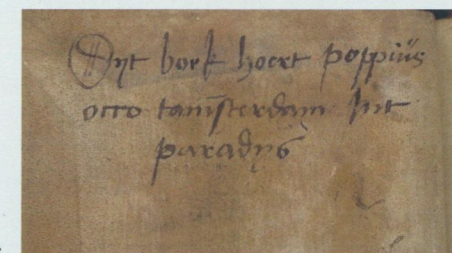 Dyt boek hoert poppius
occo tamsterdam int
paradys